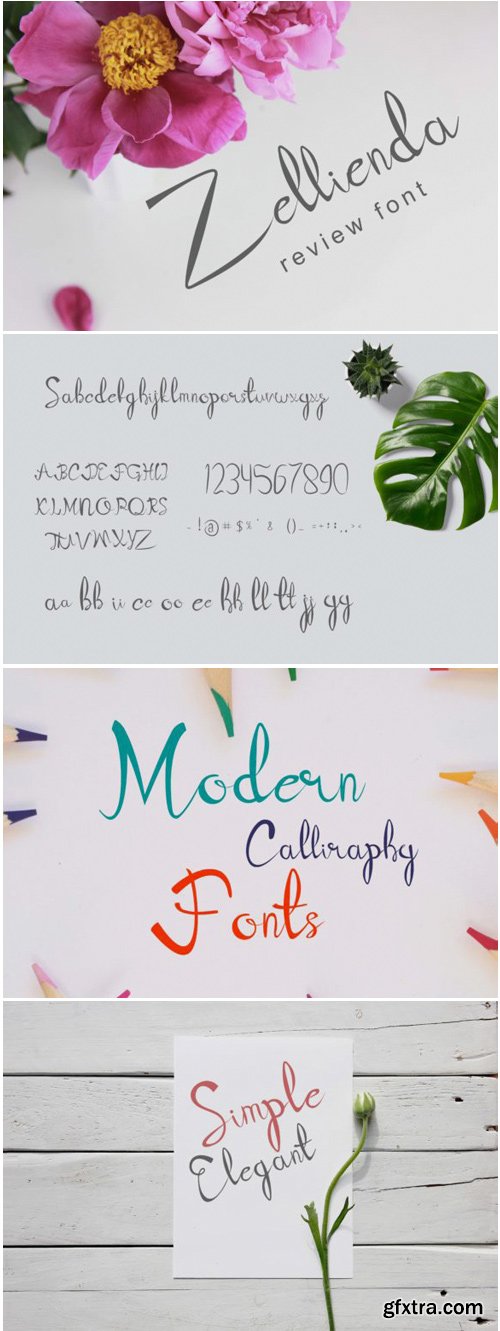 Zellienda
review font
Sabcdefghijklmnopqrstuvwxyz
ABCDEFGHIJ
KLMNOPQRS
TUVWXYZ
1234567890
aa bb ii cc oo ee hh ll tt jj gg
Modern
Calliraphy
Fonts
Simple
Elegant
gfxtra.com